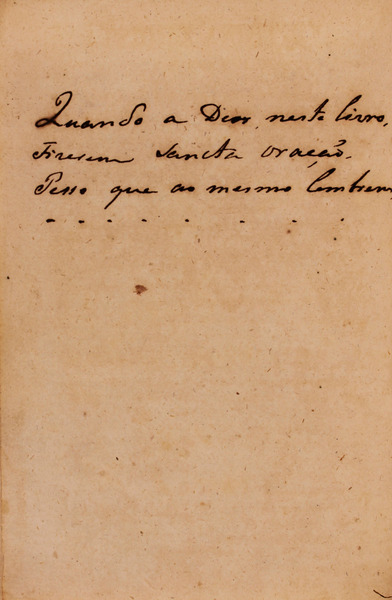 Quando a Deos, neste livro,
Fizesem sancta oração.
Pesso que ao mesmo lembrem
. . . . . . .